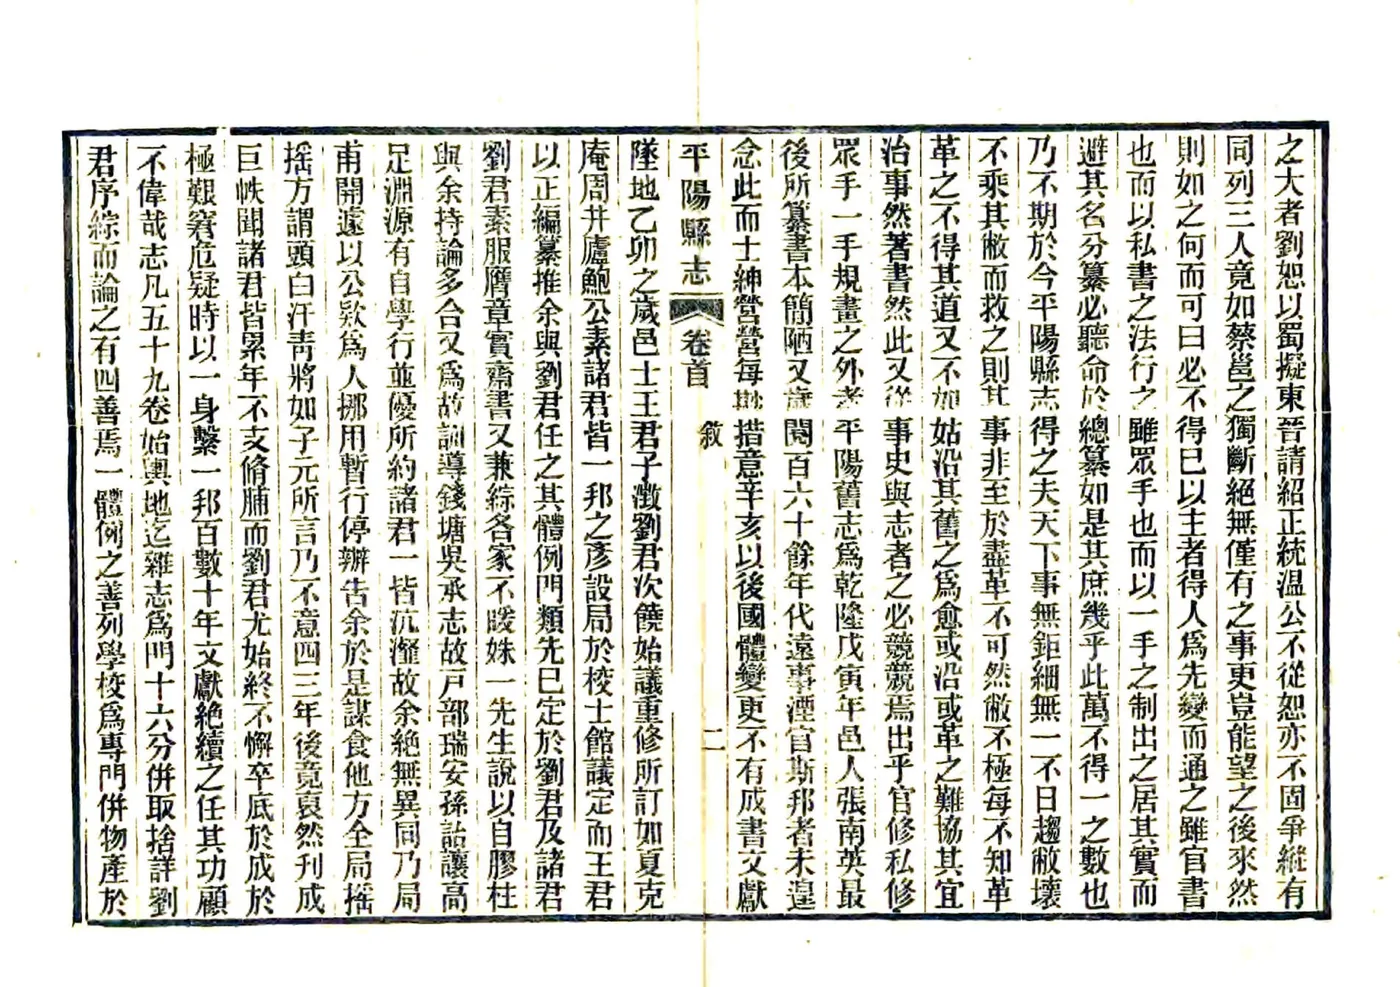 之大者劉恕以蜀擬東晉請紹正統温公不從恕亦不固爭縱有
同列三人竟如蔡邕之獨斷絕無僅有之事更豈能望之後來然
則如之何而可曰必不得已以主者得人爲先變而通之雖官書
也而以私書之法行之雖眾手也而以一手之制出之居其實而
避其名分纂必聽命於總纂如是其庶幾乎此萬不得一之數也
乃不期於今平陽縣志得之夫天下事無鉅細無一不日趨敝壞
不乘其敝而救之則其事非至於盡革不可然敝不極每不知革
革之不得其道又不如姑沿其舊之爲愈或沿或革之難協其宜
治事然著書然此又從事史與志者之必競競焉出乎官修私修
眾手一手規畫之外者平陽舊志爲乾隆戊寅年邑人張南英最
後所纂書本簡陋又歲閱百六十餘年代遠事湮官斯邦者未遑
念此而士紳營營每尠措意辛亥以後國體變更不有成書文獻
平陽縣志 卷首 敘 二
墜地乙卯之歲邑士王君子澂劉君次饒始議重修所訂如夏克
庵周井廬鮑公素諸君皆一邦之彥設局於校士館議定而王君
以正編纂推余與劉君任之其體例門類先已定於劉君及諸君
劉君素服膺章實齋書又兼綜各家不暖姝一先生說以自膠柱
與余持論多合又爲故訓導錢塘吳承志故戸部瑞安孫詒讓高
足淵源有自學行並優所約諸君一皆沆瀣故余絕無異同乃局
甫開遽以公欵爲人挪用暫行停辦告余於是謀食他方全局搖
搖方謂頭白汗靑將如子元所言乃不意四三年後竟裒然刊成
巨帙聞諸君皆累年不支脩脯而劉君尤始終不懈卒底於成於
極艱窘危疑時以一身繫一邦百數十年文獻絕續之任其功顧
不偉哉志凡五十九卷始輿地迄雜志爲門十六分併取捨詳劉
君序綜而論之有四善焉一體例之善列學校爲專門併物產於